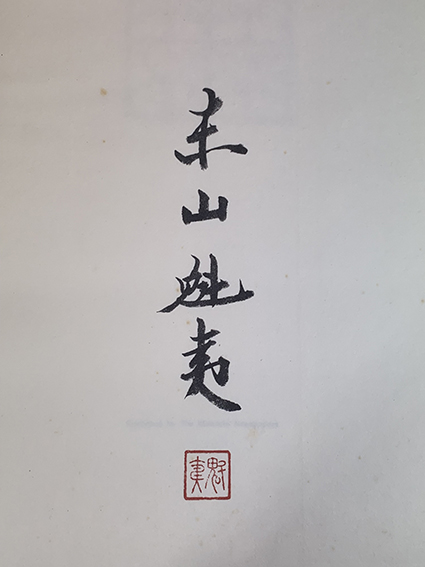 東山魁夷
魁夷